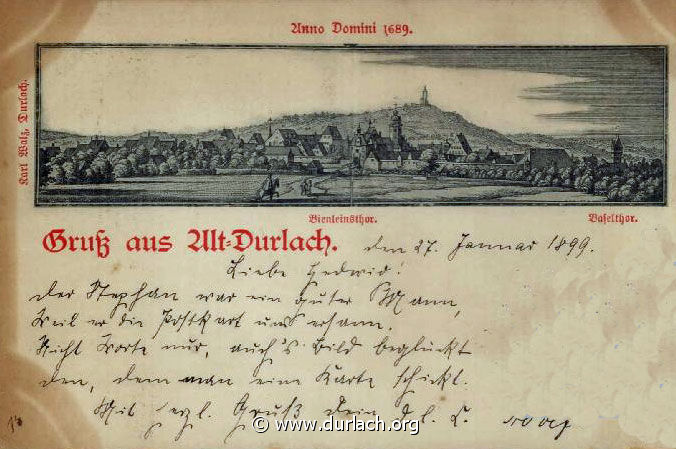 Anno Domini 1689.
Karl Walz, Durlach.
Bienleinsthor.
Baselthor.
Gruß aus Alt=Durlach.
den 27. Januar 1899.
Liebe Hedwig!
der Stephan war ein guter Mann,
Weil er die Postkart uns ersann.
Nicht Worte nur, auch's Bild beglückt
den, dem man eine Karte schickt.
Mit herzl. Gruß Dein
© www.durlach.org